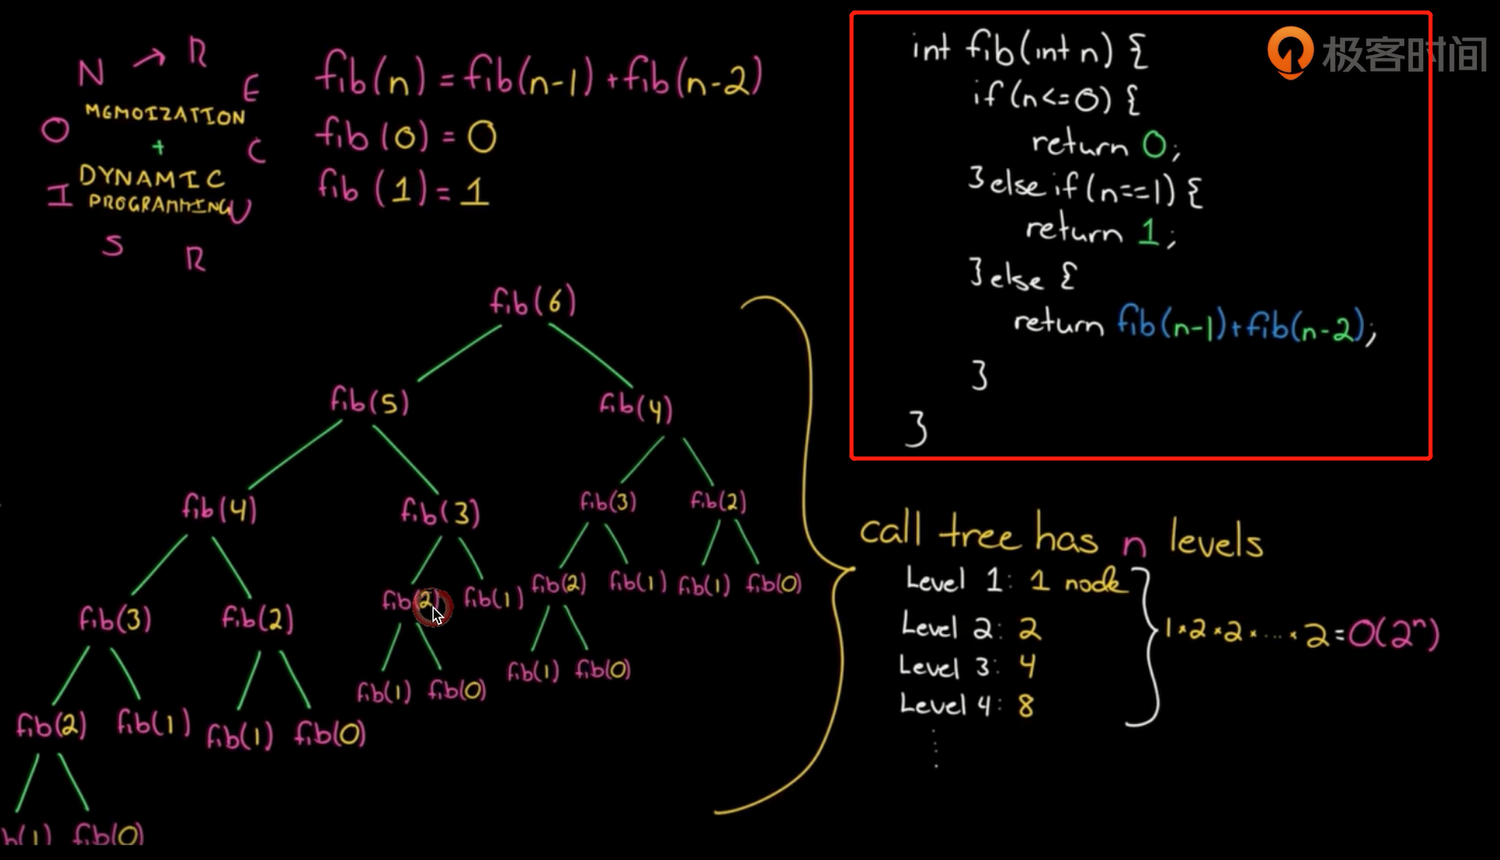 N → R E C U R S I O
MEMOIZATION
+
DYNAMIC
PROGRAMMING
fib(n) = fib(n-1) + fib(n-2)
fib (0) = 0
fib (1) = 1
int fib(int n) {
if(n<=0) {
return 0;
}else if(n==1) {
return 1;
}else {
return fib(n-1)+fib(n-2);
}
}
极客时间
fib(6)
fib(5) fib(4)
fib(4) fib(3) fib(3) fib(2)
fib(2) fib(1) fib(2) fib(1) fib(1) fib(0)
fib(3) fib(2)
fib(1) fib(0) fib(1) fib(0)
fib(2) fib(1) fib(1) fib(0)
b(1) fib(0)
call tree has n levels
Level 1: 1 node
Level 2: 2
Level 3: 4
Level 4: 8
1*2*2*....*2=O(2ⁿ)